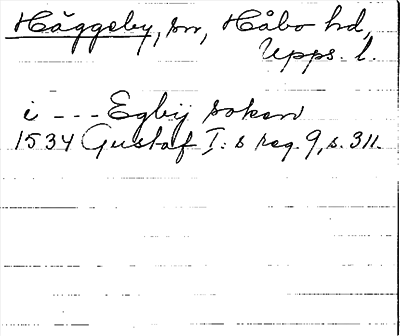 Häggeby, sn, Håbo hd,
Upps. l.
i --- Egby soken
1534 Gustaf I:s reg. 9, s. 311.